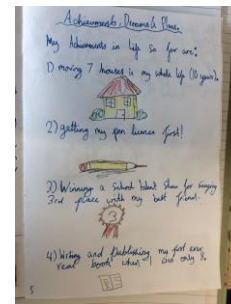 Achievements, Dreams & Plans
My Achievements in life so far are:
1) moving 7 houses in my whole life (10 years).
2) getting my pen licence first!
3) Winning a School talent Show for singing
3rd place with my best friend.
3
4) Writing and Publishing my first ever
real book when I was only 8.
5